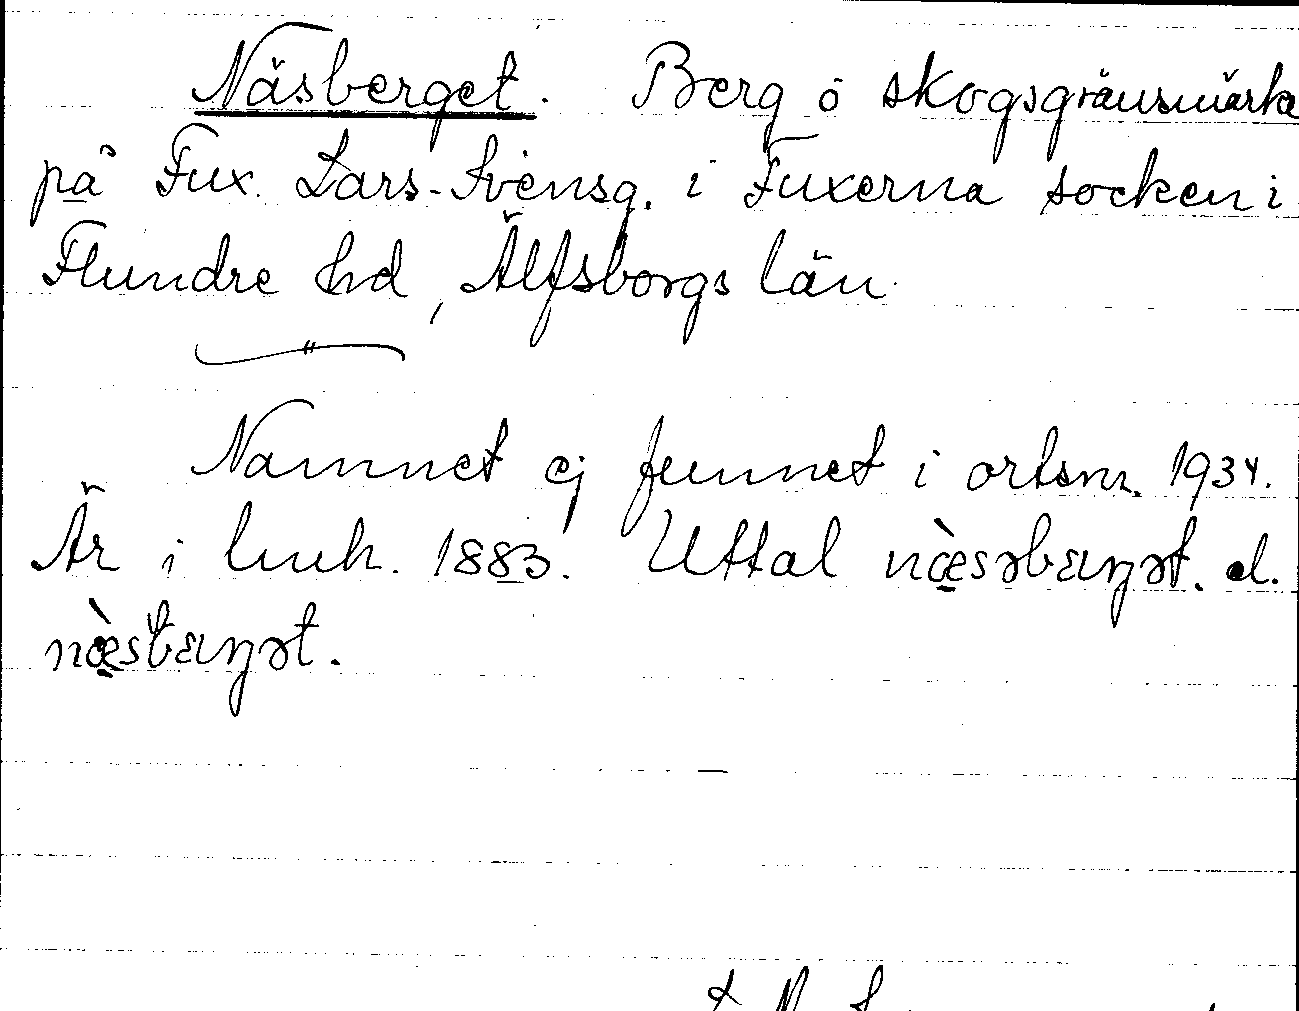 Näsberget. Berg o skogsgränsmärke
på Fux. Lars-Svensg. i Fuxerna socken i
Flundre hd, Älfsborgs län.
Namnet ej funnet i ortsnr. 1934.
Är i bruk. 1883. Uttal næ̀səbærjət. el.
næ̀sbærjət.